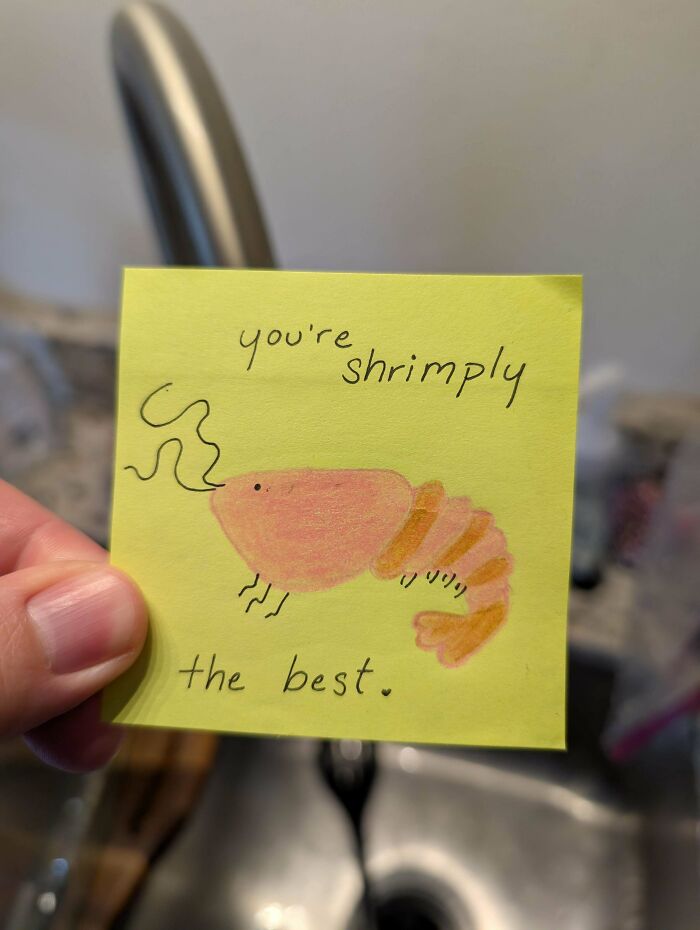 you're
shrimply
the best.